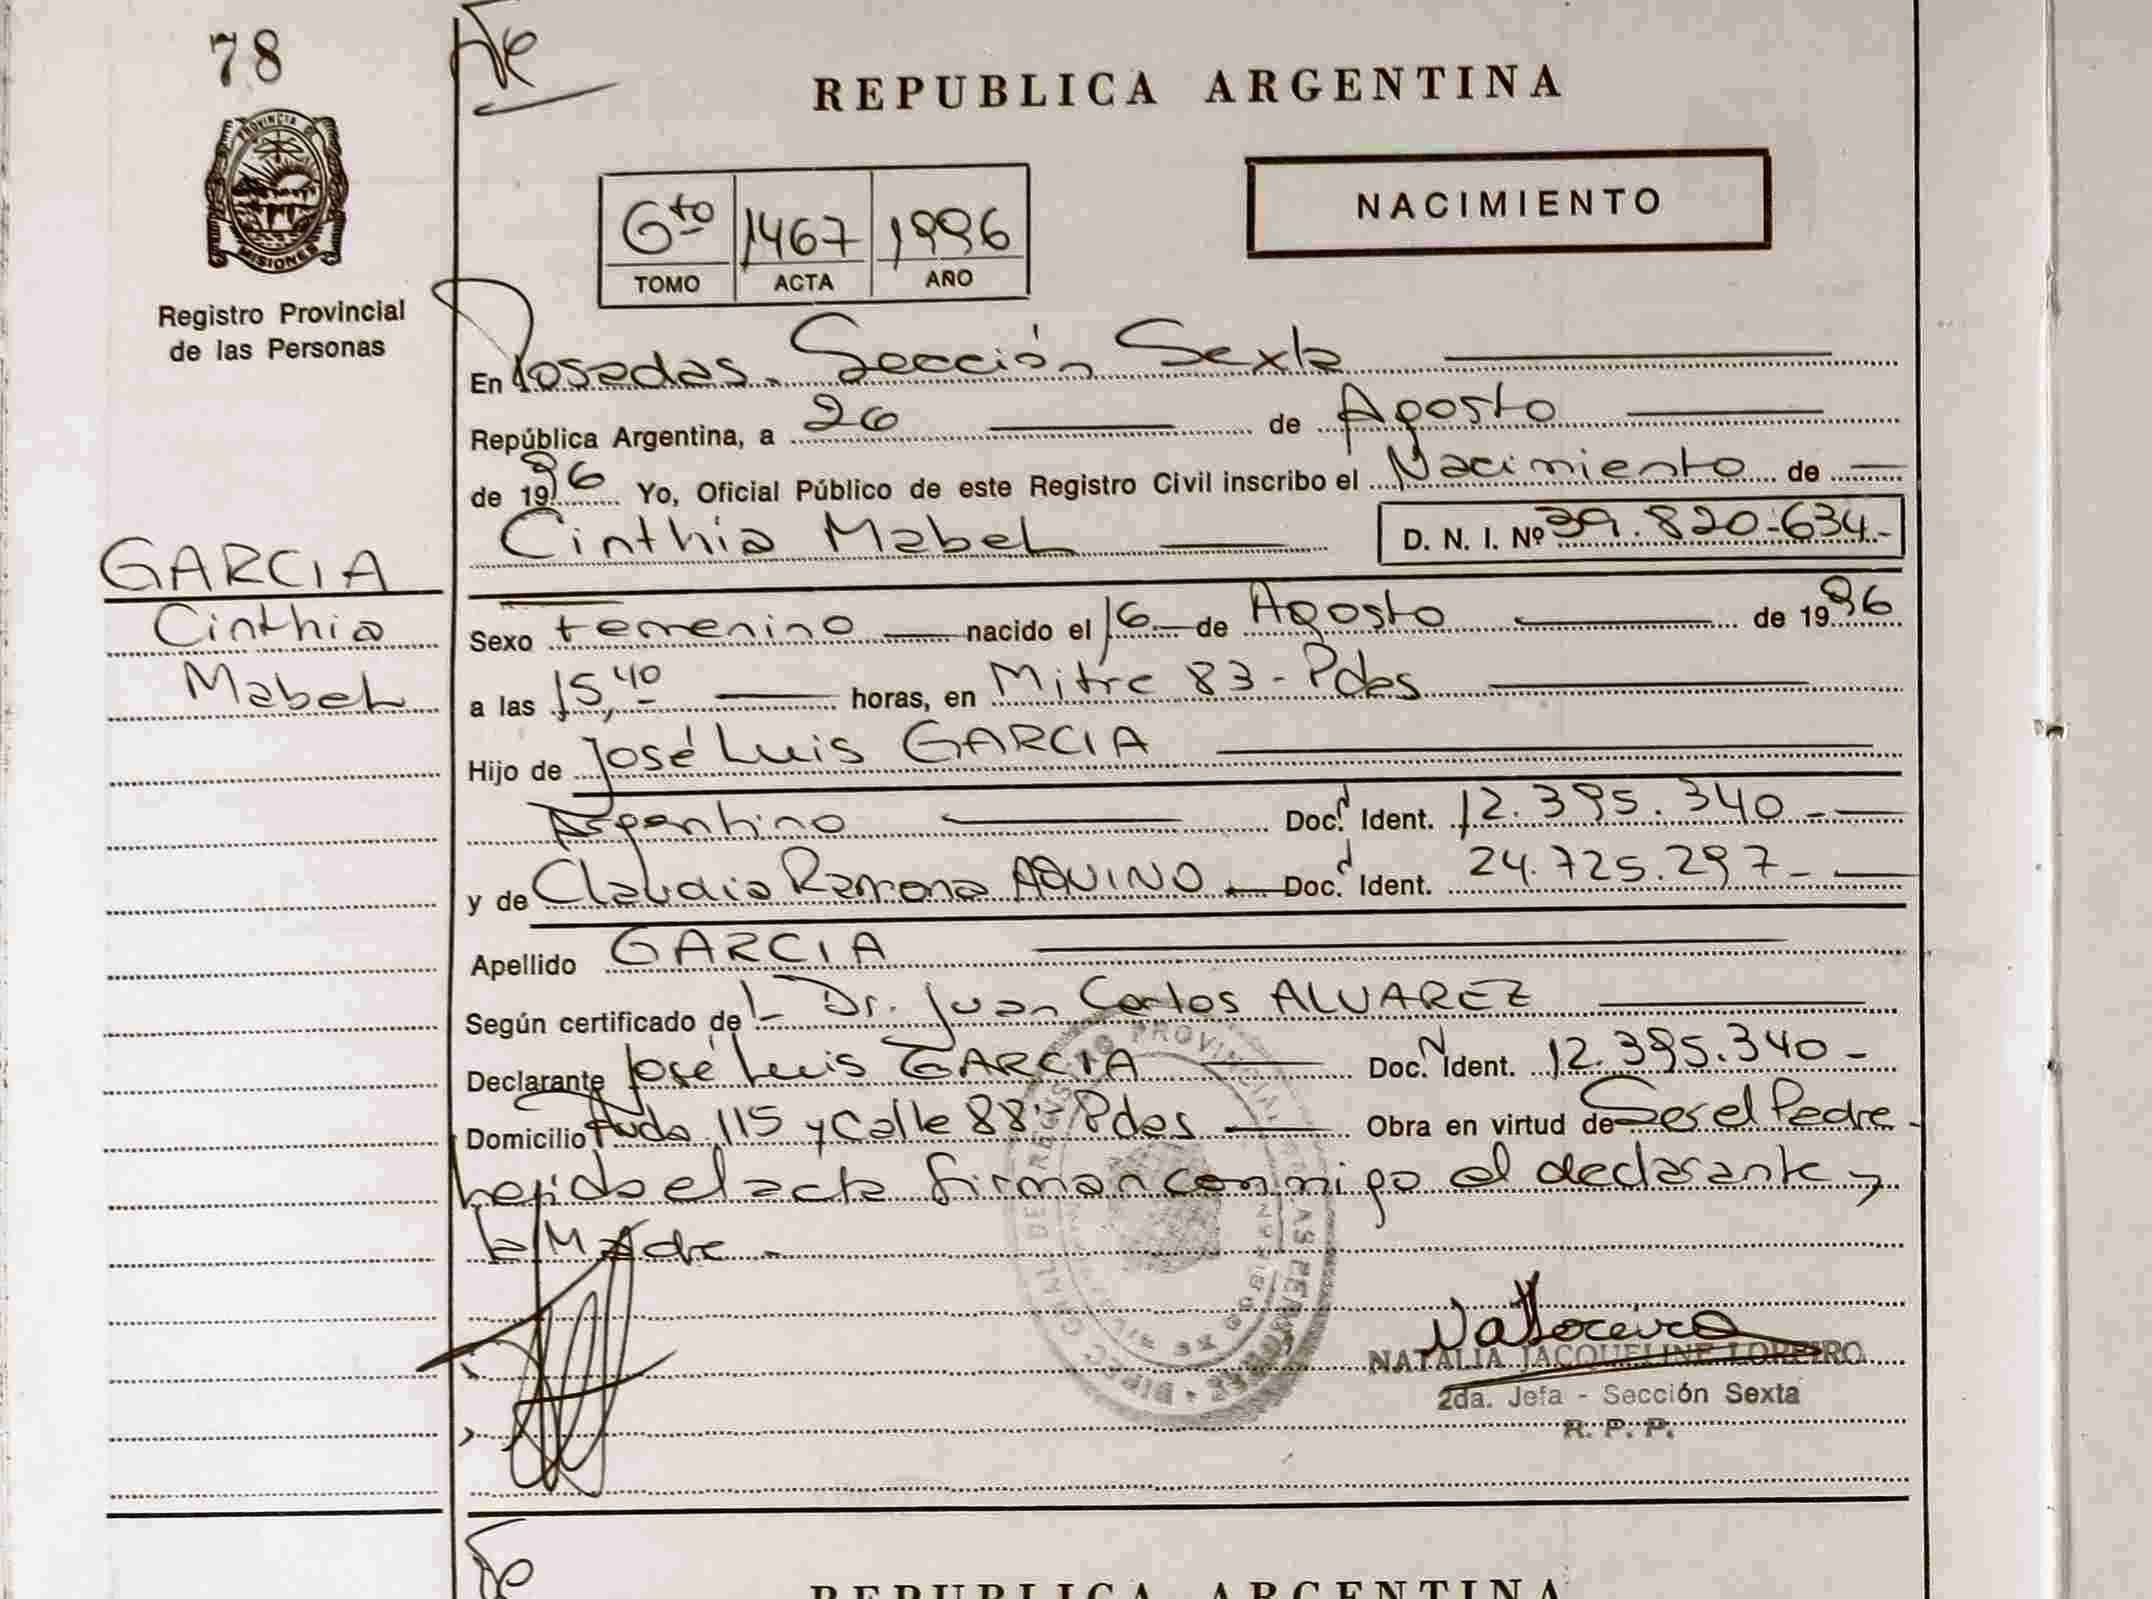 78
Fe
PROVINCIA DE
MISIONES
Registro Provincial
de las Personas
REPUBLICA ARGENTINA
NACIMIENTO
6to 1467 1996
TOMO ACTA AÑO
En Posadas. Sección Sexta
República Argentina, a 26 de Agosto
de 1996 Yo, Oficial Público de este Registro Civil inscribo el Nacimiento de
Cinthia Mabel D. N. I. Nº 39.820.634.-
GARCIA
Cinthia
Mabel
Sexo femenino nacido el 16 de Agosto de 1996
a las 15,40 horas, en Mitre 83 - Pdas
Hijo de José Luis GARCIA
Argentino Doc. Ident. 12.395.340 -
y de Claudia Ramona AQUINO Doc. Ident. 24.725.297 -
Apellido GARCIA
Según certificado del Dr. Juan Carlos ALVAREZ
Declarante José Luis GARCIA Doc. Ident. 12.395.340 -
Domicilio Avda 115 y Calle 88 - Pdas Obra en virtud de Ser el Padre -
leida el acta firman conmigo el declarante y
la Madre -
NATALIA JACQUELINE LOREIRO
2da. Jefa - Sección Sexta
R. P. P.
REPUBLICA ARGENTINA